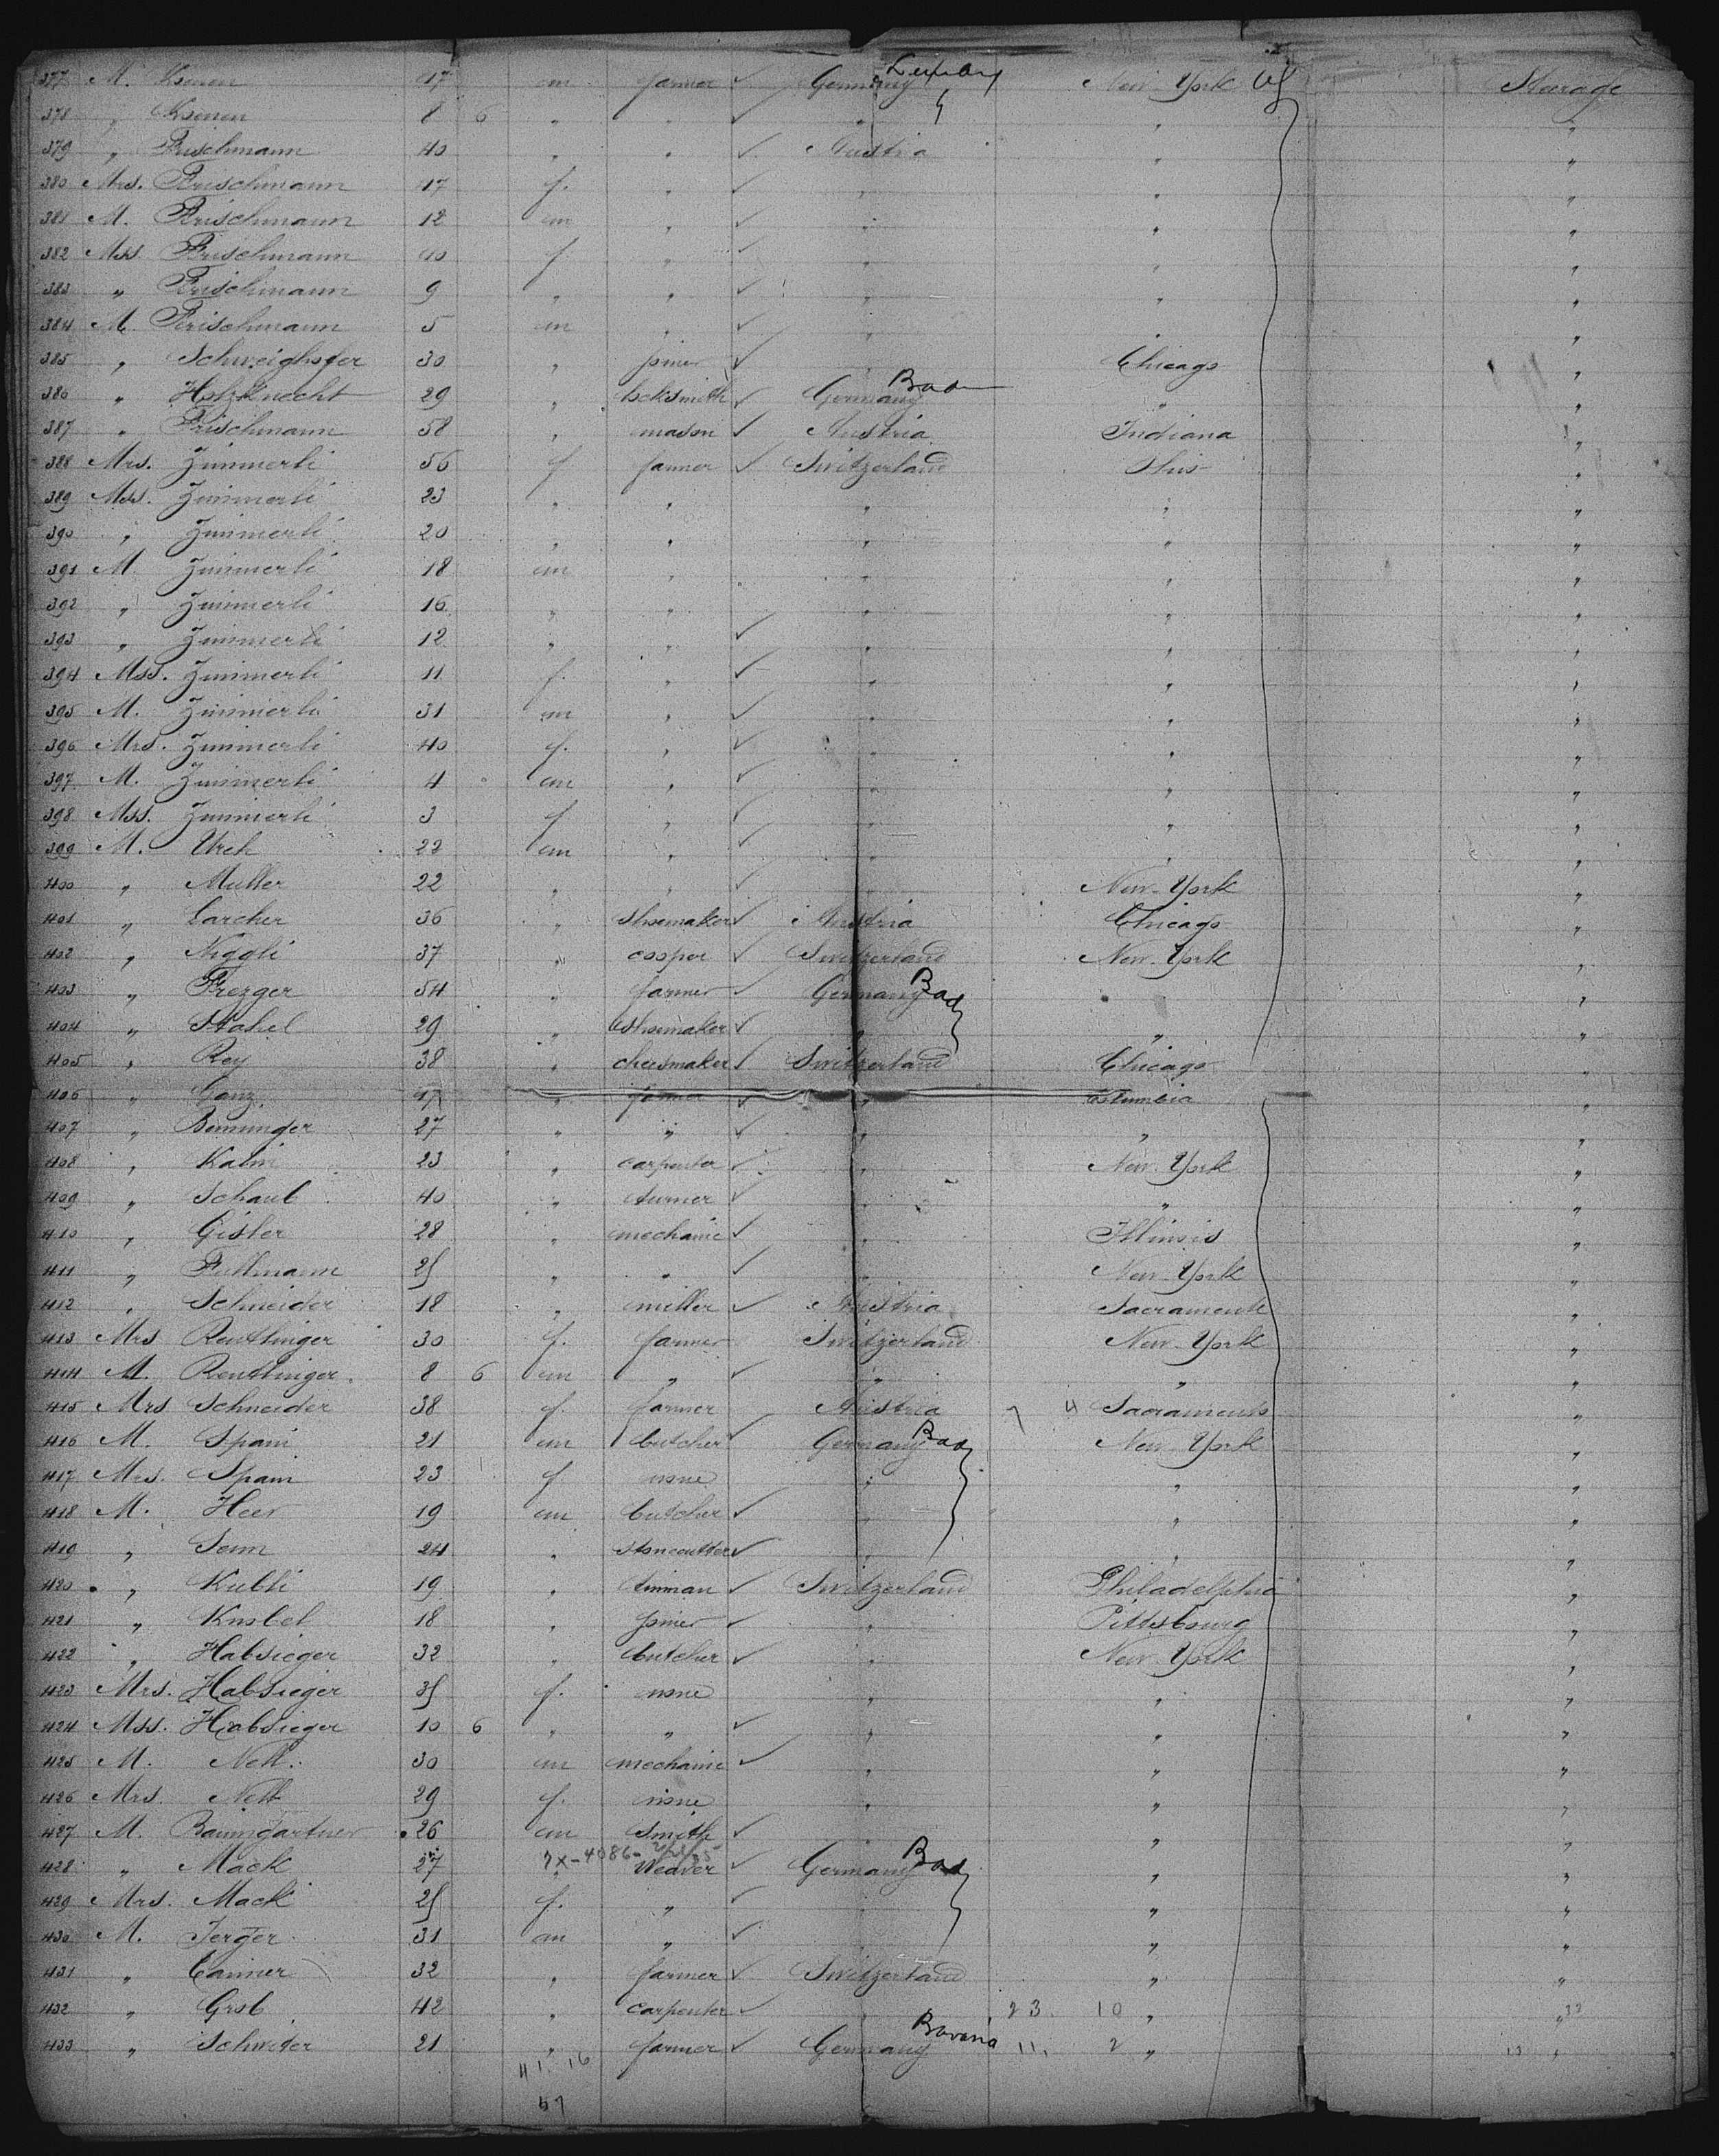 377 M. Konen 17 m farmer ✓ Germany New-York Steerage
378 " Konen 8 6 " " ✓ " " "
379 " Frischmann 40 " " ✓ Austria " "
380 Mrs. Frischmann 47 f. " ✓ " " "
381 M. Frischmann 12 m " ✓ " " "
382 Mss. Frischmann 10 f " ✓ " " "
383 " Frischmann 9 " " ✓ " " "
384 M. Frischmann 5 m " ✓ " " "
385 " Schweighofer 30 " joiner ✓ " Chicago "
386 " Holzknecht 29 " locksmith ✓ Germany Baden " "
387 " Frischmann 58 " mason ✓ Austria Indiana "
388 Mrs. Zimmerli 56 f farmer ✓ Switzerland Ohio "
389 Mss. Zimmerli 23 " " " " "
390 " Zimmerli 20 " " " " "
391 M. Zimmerli 18 m " " " "
392 " Zimmerli 16 " " " " "
393 " Zimmerli 12 " " ✓ " " "
394 Mss. Zimmerli 11 f. " ✓ " " "
395 M. Zimmerli 31 m " ✓ " " "
396 Mrs. Zimmerli 40 f. " ✓ " " "
397 M. Zimmerli 4 m " ✓ " " "
398 Mss. Zimmerli 3 f " ✓ " " "
399 M. Urech 22 m " ✓ " " "
400 " Muller 22 " " ✓ " New-York "
401 " Larcher 36 " shoemaker ✓ Austria Chicago "
402 " Niggli 37 " cooper ✓ Switzerland New-York "
403 " Frezger 54 " farmer ✓ Germany Bad " "
404 " Stahel 29 " shoemaker ✓ " " "
405 " Rey 38 " cheesmaker ✓ Switzerland Chicago "
406 " Ganz 17 " farmer ✓ " Columbia "
407 " Benninger 27 " " ✓ " " "
408 " Kalin 23 " carpenter ✓ " New-York "
409 " Schaub 40 " turner ✓ " " "
410 " Gisler 28 " mechanic ✓ " Illinois "
411 " Fullmann 25 " " ✓ " New-York "
412 " Schneider 18 " miller ✓ Austria Sacramento "
413 Mrs Reutlinger 30 f. farmer Switzerland New-York "
414 M. Reutlinger 8 6 m " ✓ " " "
415 Mrs Schneider 38 f. farmer Austria 7 4 Sacramento "
416 M. Spani 21 m butcher ✓ Germany Bad New-York "
417 Mrs. Spani 23 f none " " "
418 M. Heer 19 m butcher ✓ " " "
419 " Senn 24 " stonecutter ✓ " " "
420 " Kubli 19 " tinman ✓ Switzerland Philadelphia "
421 " Knobel 18 " joiner ✓ " Pittsbourg "
422 " Habsieger 32 " butcher ✓ " New-York "
423 Mrs. Habsieger 35 f. none " " "
424 Mss. Habsieger 10 6 " " ✓ " " "
425 M. Neff 30 m mechanic ✓ " " "
426 Mrs. Neff 29 f. none " " "
427 M. Baumgartner 26 m Smith ✓ " " "
428 " Mack 27 7x-4086- Weaver ✓ Germany Bad " "
429 Mrs. Mack 25 f. " ✓ " " "
430 M. Jerger 31 m " ✓ " " "
431 " Canner 32 " farmer ✓ Switzerland " "
432 " Grob 42 " carpenter ✓ 23 10 " "
433 " Schweter 21 " farmer ✓ Germany Bavaria 11 2 " "
41 16
57